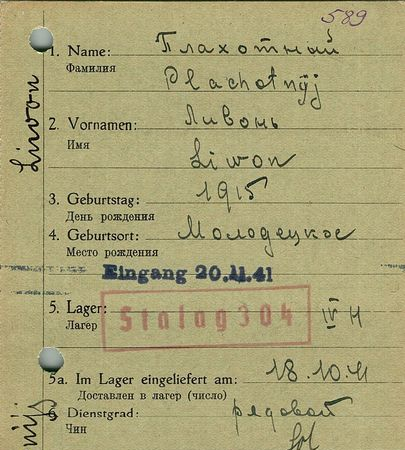 589
1. Name: Плахотный
Фамилия
Plachotnyj
Liwon
2. Vornamen: Ливонь
Имя
Liwon
3. Geburtstag: 1915
День рождения
4. Geburtsort: Молодецкое
Место рождения
Eingang 20.11.41
5. Lager: Stalag 304 IV H
Лагер
5a. Im Lager eingeliefert am: 18.10.41
Доставлен в лагер (число)
6. Dienstgrad: рядовой
Чин
Sol
nyj